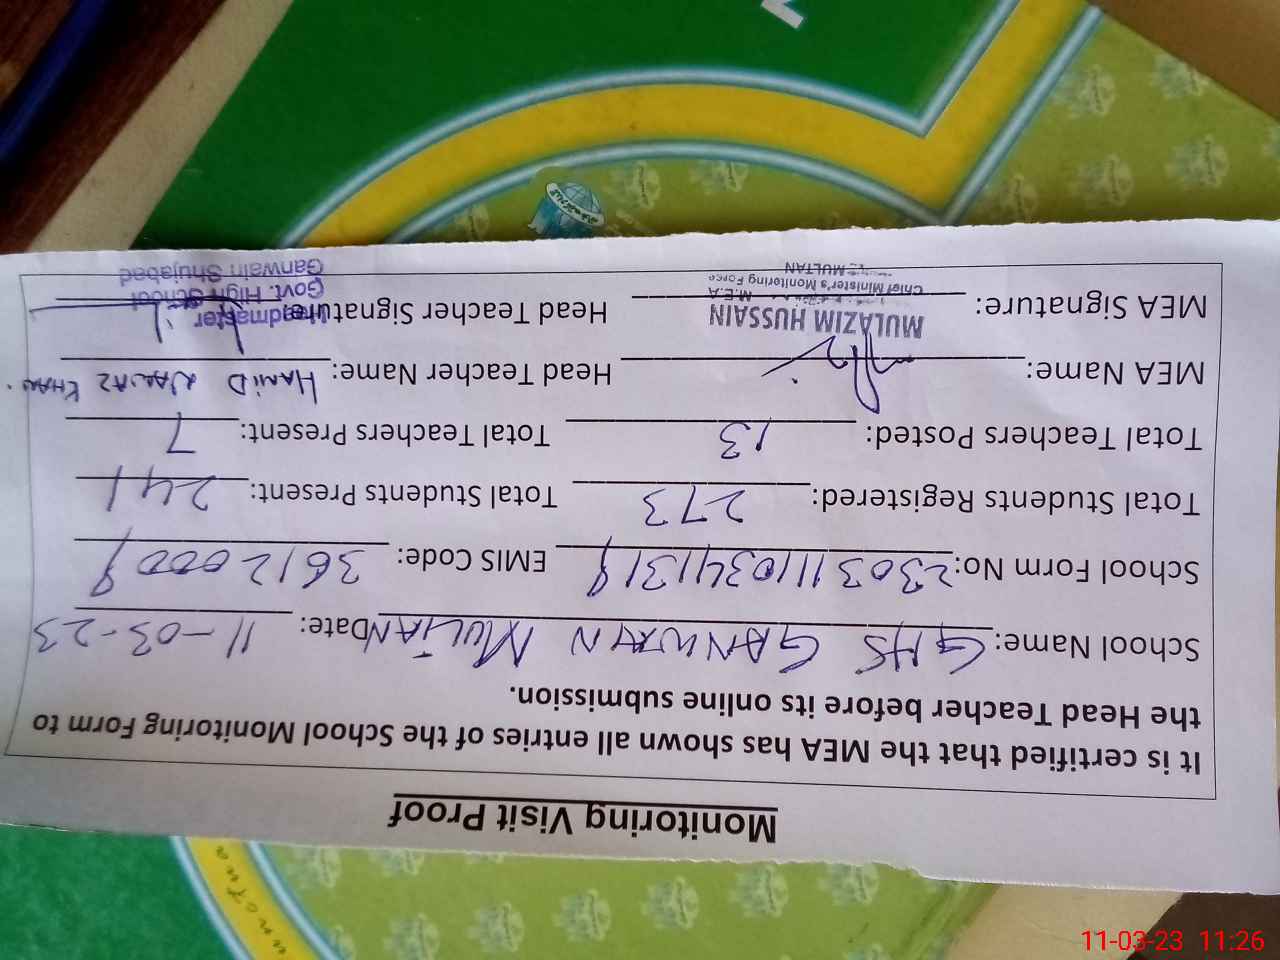 Monitoring Visit Proof
It is certified that the MEA has shown all entries of the School Monitoring Form to
the Head Teacher before its online submission.
School Name: GHS GANWAIN MULTAN Date: 11-03-23
School Form No: 23031110341319 EMIS Code: 36120009
Total Students Registered: 273 Total Students Present: 241
Total Teachers Posted: 13 Total Teachers Present: 7
MEA Name: Head Teacher Name: HAMID NAWAZ KHAN.
MULAZIM HUSSAIN
M.E.A
Chief Minister's Monitoring Force
MULTAN
MEA Signature: Head Teacher Signature:
Headmaster
Govt. High School
Ganwain Shujabad
11-03-23 11:26